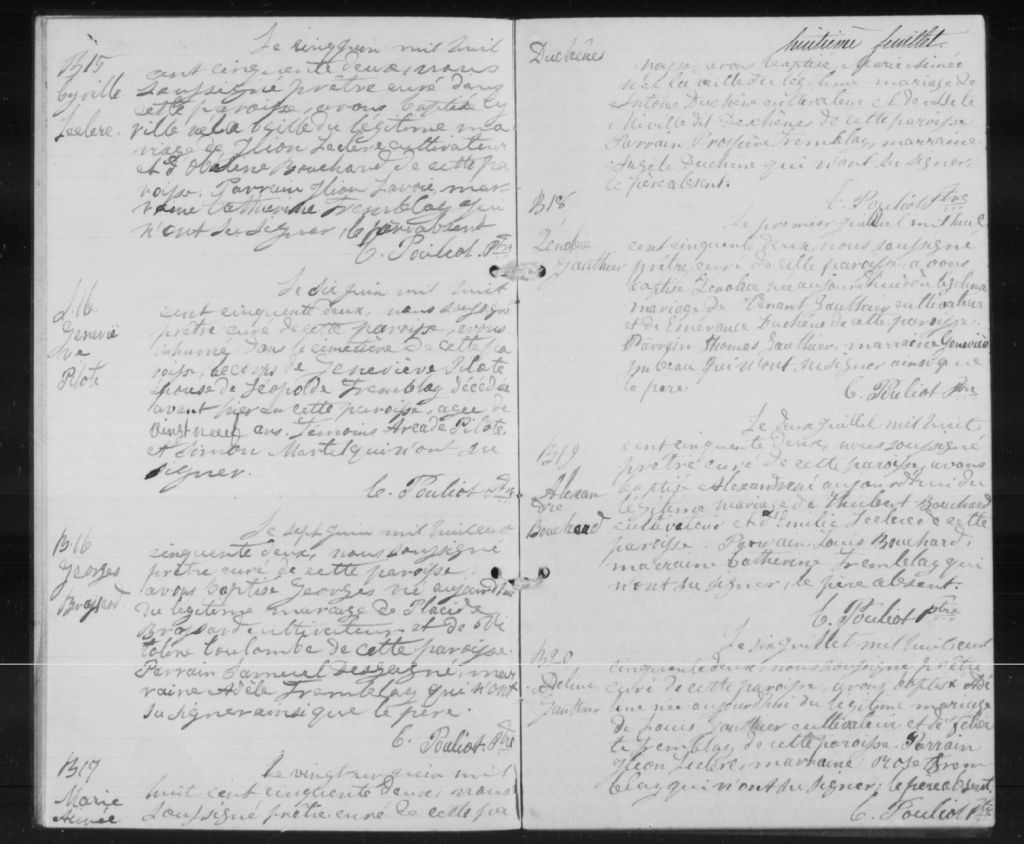 B15
Cyrille
Leclerc
Le cinq juin mil huit
cent cinquante deux, nous
soussigné prêtre curé dans
cette paroisse, avons baptisé Cy
rille né la veille du légitime ma
riage de Ilion Leclerc cultivateur
et d'Obeline Bouchard de cette pa
roisse. Parrain Ilion Lavoie, mar
raine Catherine Tremblay qui
n'ont su signer, le père absent
C. Pouliot Ptre
S.16
Geneviè
ve
Pilote
Le six juin mil huit
cent cinquante deux, nous soussigné
prêtre curé de cette paroisse, avons
inhumé dans le cimetière de cette pa
roisse, le corps de Geneviève Pilote
épouse de Léopold Tremblay décédée
avant hier en cette paroisse, agée de
vingt neuf ans. Témoins Arcade Pilote
et Simon Martel qui n'ont su
signer.
C. Pouliot Ptre
B16
Georges
Brassard
Le sept juin mil huit cent
cinquante deux, nous soussigné
prêtre curé de cette paroisse,
avons baptisé Georges né aujourd'hui
du légitime mariage de Placide
Brassard cultivateur et de Vi
toline Coulombe de cette paroisse.
Parrain Samuel Desgagné, mar
raine Adèle Tremblay qui n'ont
su signer ainsi que le père.
C. Pouliot Ptre
B17
Marie
Aimée
Le vingt un juin mil
huit cent cinquante deux, nous
soussigné prêtre curé de cette pa
huitième feuillet.
Duchênes
roisse, avons baptisé Marie Aimée
née la veille du légitime mariage de
Antoine Duchêne cultivateur et de
Miville dit Deschênes de cette paroisse
Parrain Tremblay, marraine
Angèle Duchêne qui n'ont su signer,
le père absent.
C. Pouliot Ptre
B18
Zénobie
Gauthier
Le premier juillet mil huit
cent cinquante deux, nous soussigné
prêtre curé de cette paroisse, avons
baptisé Zénobie née aujourd'hui du légitime
mariage de Venant Gauthier cultivateur
et de Emerance Duchêne de cette paroisse.
Parrain Thomas Gauthier, marraine Geneviève
Imbeau qui n'ont su signer ainsi que
le père
C. Pouliot Ptre
B19
Alexan
dre
Bouchard
Le deux juillet mil huit
cent cinquante deux, nous soussigné
prêtre curé de cette paroisse, avons
baptisé Alexandre né aujourd'hui du
légitime mariage de Hubert Bouchard
cultivateur et d'Emilie Leclerc de cette
paroisse. Parrain Louis Bouchard,
marraine Catherine Tremblay qui
n'ont su signer, le père absent.
C. Pouliot Ptre
B20
Deline
Gauthier
Le six juillet mil huit cent
cinquante deux, nous soussigné prêtre
curé de cette paroisse, avons baptisé Adé
line née aujourd'hui du légitime mariage
de Louis Gauthier cultivateur et de
Tremblay de cette paroisse. Parrain
Ilion Leclerc, marraine Rose Trem
blay qui n'ont su signer, le père absent.
C. Pouliot Ptre